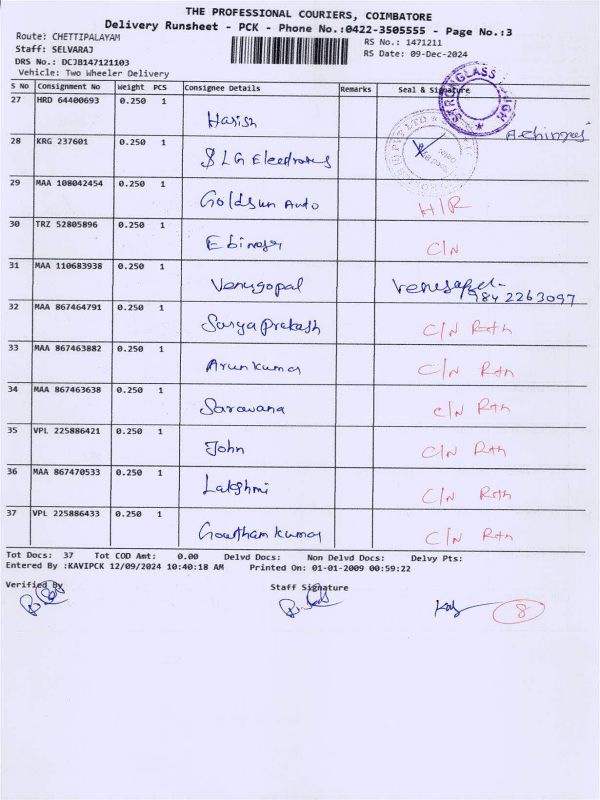 THE PROFESSIONAL COURIERS, COIMBATORE
Delivery Runsheet - PCK - Phone No.:0422-3505555 - Page No.:3
Route: CHETTIPALAYAM RS No.: 1471211
Staff: SELVARAJ RS Date: 09-Dec-2024
DRS No.: DCJB147121103
Vehicle: Two Wheeler Delivery
S No Consignment No Weight PCS Consignee Details Remarks Seal & Signature
STRONGLASS
27 HRD 64400693 0.250 1 Harish
28 KRG 237601 0.250 1 SLG Electrones
29 MAA 108042454 0.250 1 Goldsun Auto H/R
30 TRZ 52805896 0.250 1 Ebinazer C/N
31 MAA 110683938 0.250 1 Venugopal Venugopal-
984 2263097
32 MAA 867464791 0.250 1 Suryaprakash C/N Rtn
33 MAA 867463882 0.250 1 Arunkumar C/N Rtn
34 MAA 867463638 0.250 1 Saravana C/N Rtn
35 VPL 225886421 0.250 1 John C/N Rtn
36 MAA 867470533 0.250 1 Lakshmi C/N Rtn
37 VPL 225886433 0.250 1 Gowtham kumar C/N Rtn
Tot Docs: 37 Tot COD Amt: 0.00 Delvd Docs: Non Delvd Docs: Delvy Pts:
Entered By :KAVIPCK 12/09/2024 10:40:18 AM Printed On: 01-01-2009 00:59:22
Verified By Staff Signature
8